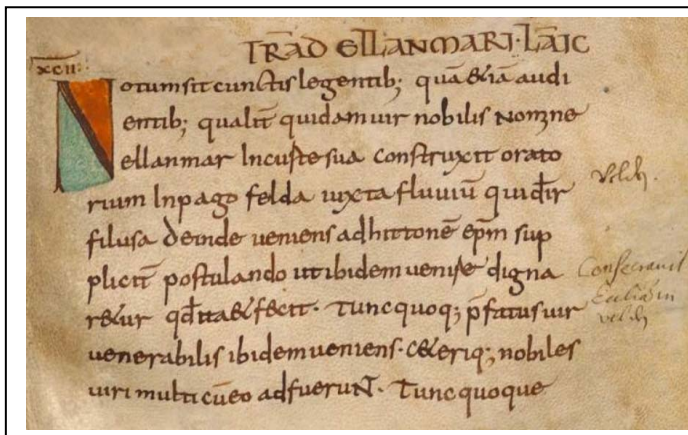 TRAD ELLANMARI·LAIC
XCII
Notum sit cunctis legentib; quā &iā audi
entib; qualit̄ quidam uir nobilis Nomine
ellanmar In custe sua construxit orato
rium In pago felda iuxta fluuiū qui dr̄
filusa deinde ueniens ad hittonē ep̄m sup
plicit̄ postulando ut ibidem uenire digna
r&ur qđ ita & fecit· Tunc quoq; p̄fatus uir
uenerabilis ibidem ueniens·c&eriq; nobiles
uiri multi cū eo adfuerunt· Tunc quoque
Consecrauit
in